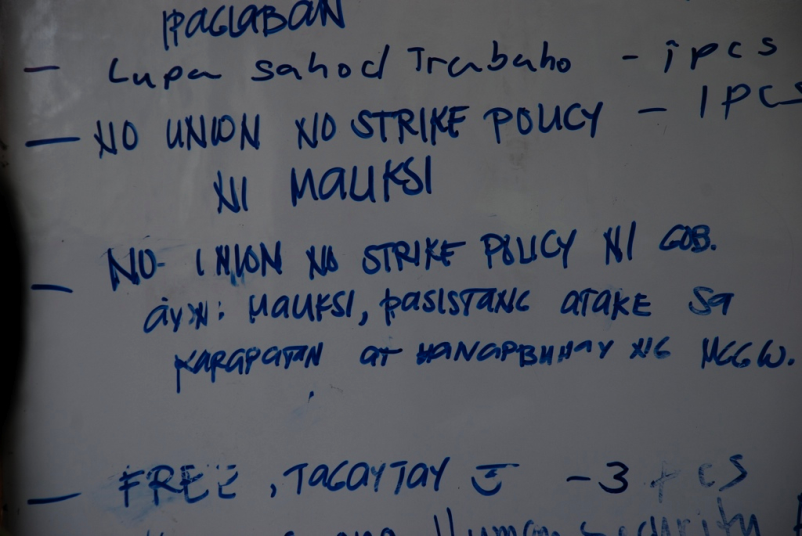 PAGLABAN
- Lupa sahod Trabaho - 1 pcs
- NO UNION NO STRIKE POLICY - 1 PCS
NI MALIKSI
- NO UNION NO STRIKE POLICY NI GOB.
AYN: MALIKSI, PASISTANG ATAKE SA
KARAPATAN AT HANAPBUHAY NG MGGW.
- FREE, TAGAYTAY 5 - 3 PCS
Human Security